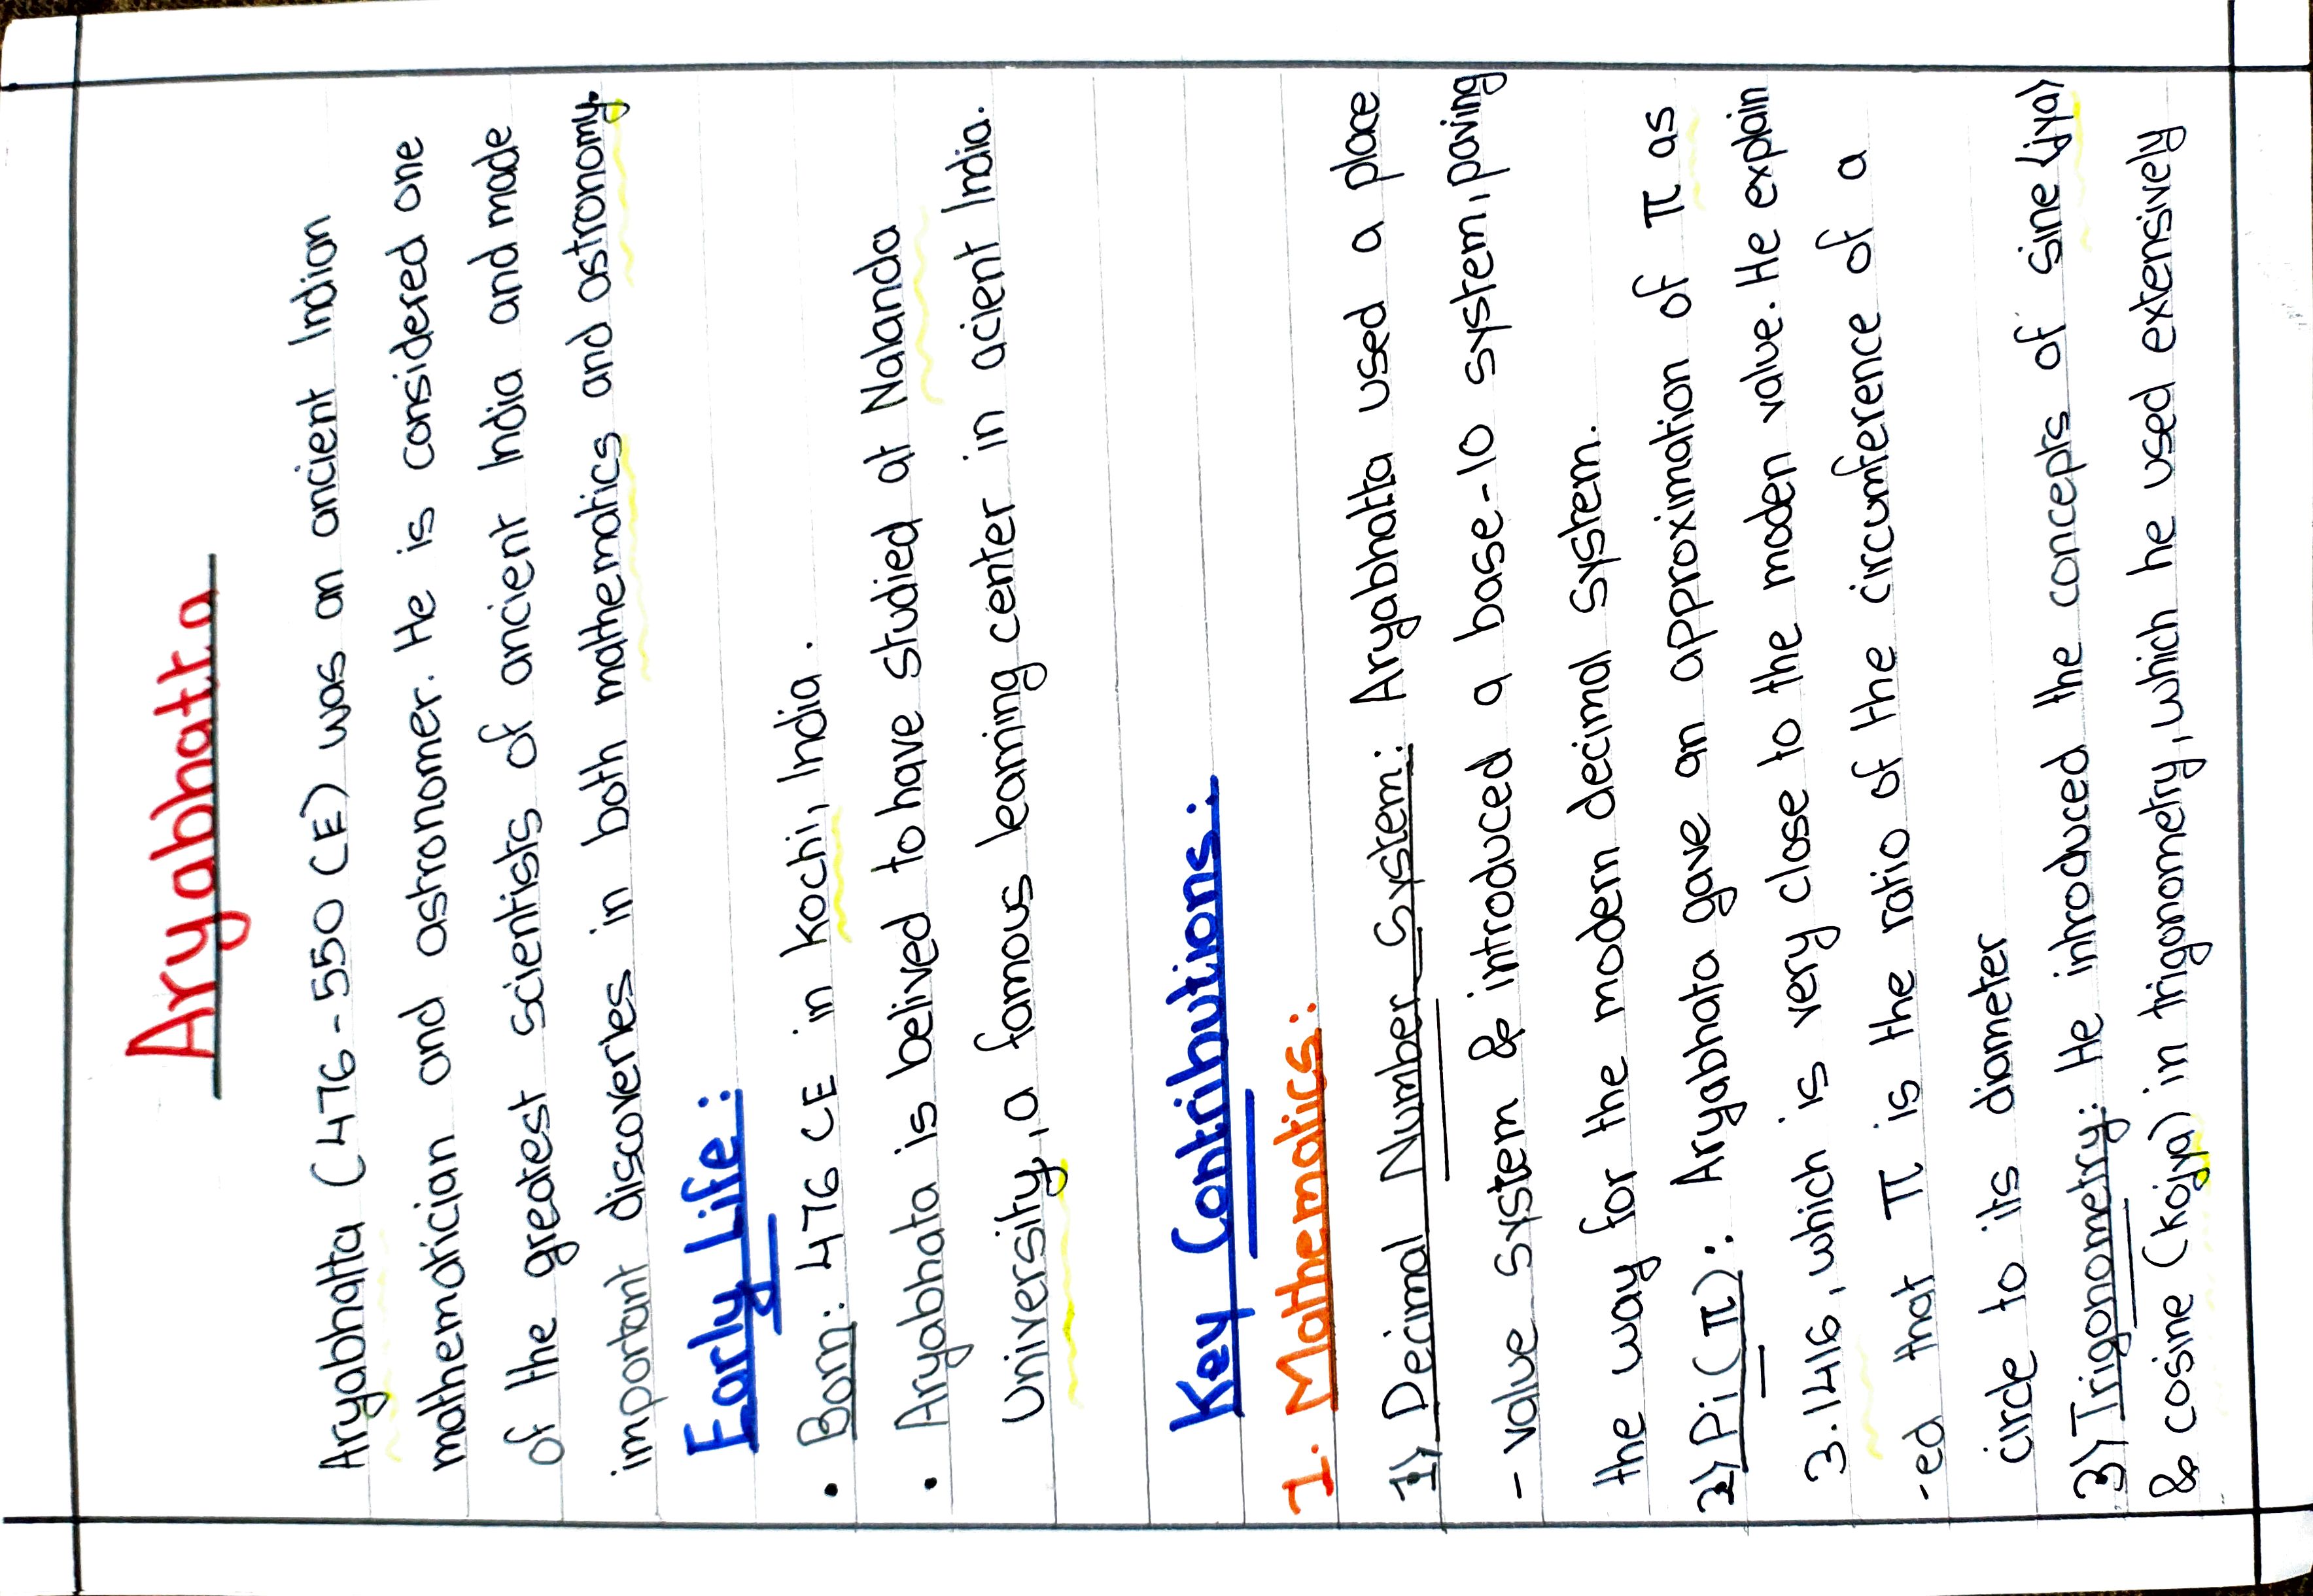 Aryabhatta
Aryabhatta (476-550 CE) was an ancient Indian
mathematician and astronomer. He is considered one
of the greatest scientists of ancient India and made
important discoveries in both mathematics and astronomy.
Early Life :
• Born: 476 CE in Kochi, India.
• Aryabhata is belived to have studied at Nalanda
University, a famous learning center in acient India.
Key Contributions:
1. Mathematics:
1) Decimal Number System: Aryabhatta used a place
- value system & introduced a base-10 system, paving
the way for the modern decimal system.
2) Pi (π): Aryabhata gave an approximation of π as
3.1416, which is very close to the moden value. He explain
-ed that π is the ratio of the circumference of a
circle to its diameter
3) Trigonometry: He introduced the concepts of sine (jya)
& cosine (kojya) in trigonometry, which he used extensively